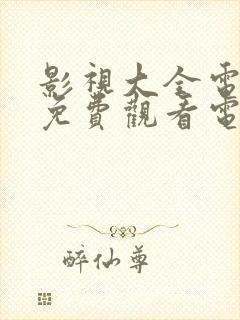 影視大全電
免費觀看電
醉仙尊